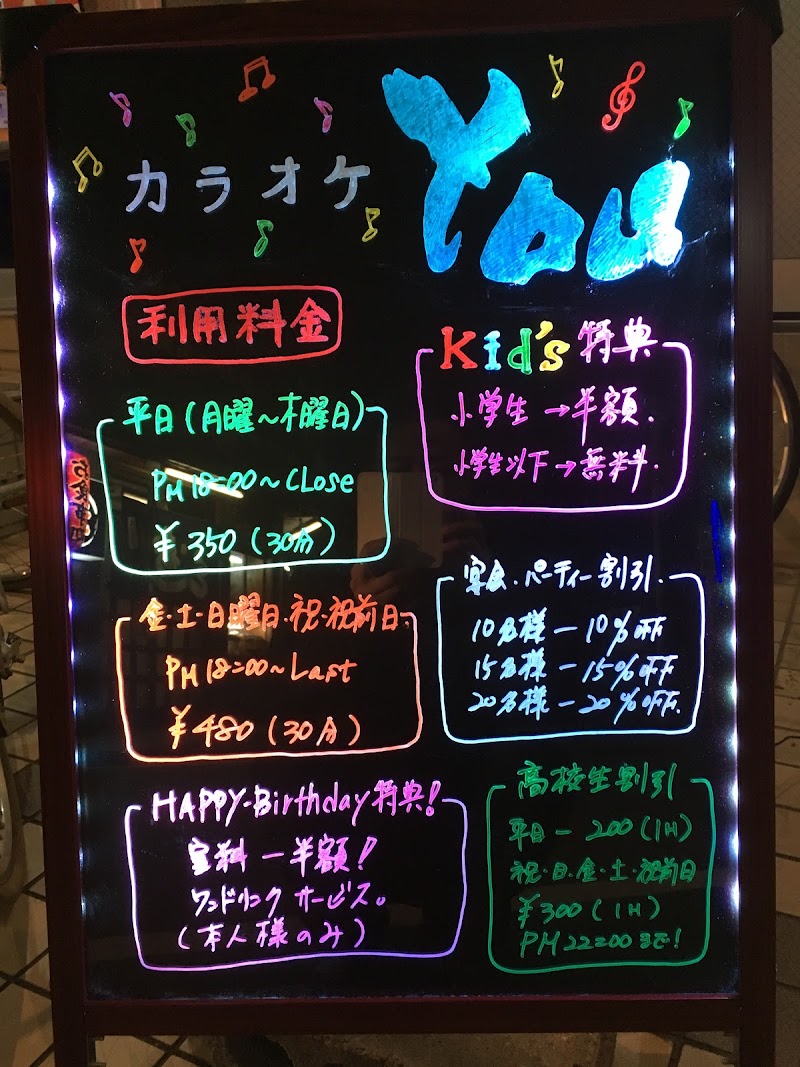 カラオケ You
利用料金
平日(月曜～木曜日)
PM18:00～CLose
￥350(30分)
金・土・日曜日・祝・祝前日
PM18:00～Last
￥480(30分)
HAPPY-Birthday特典!
室料－半額!
ワンドリンクサービス。
(本人様のみ)
Kid's特典
小学生→半額.
小学生以下→無料.
宴会・パーティー割引.
10名様－10%OFF
15名様－15%OFF
20名様－20%OFF.
高校生割引
平日－200(1H)
祝・日・金・土・祝前日
￥300(1H)
PM22:00まで!